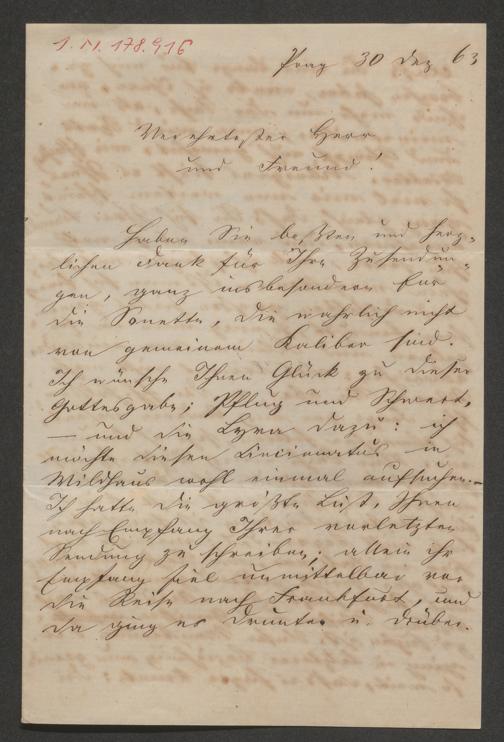 I. N. 178.916
Prag 30 Dez 63
Verehrtester Herr
und Freund!
Haben Sie besten und herz-
lichen Dank für Ihre Zusendun-
gen, ganz insbesondere für
die Sonette, die wahrlich nicht
von gemeinem Kaliber sind.
Ich wünsche Ihnen Glück zu dieser
Gottesgabe; Pflug und Schwert,
— und die Lyra dazu: ich
möchte diesen Cincinnatus in
Wildhaus wohl einmal aufsuchen. —
Ich hatte die größte Lust, Ihnen
nach Empfang Ihrer vorletzten
Sendung zu schreiben; allein ihr
Empfang fiel unmittelbar vor
die Reise nach Frankfurt, und
da ging es drunter u. drüber.